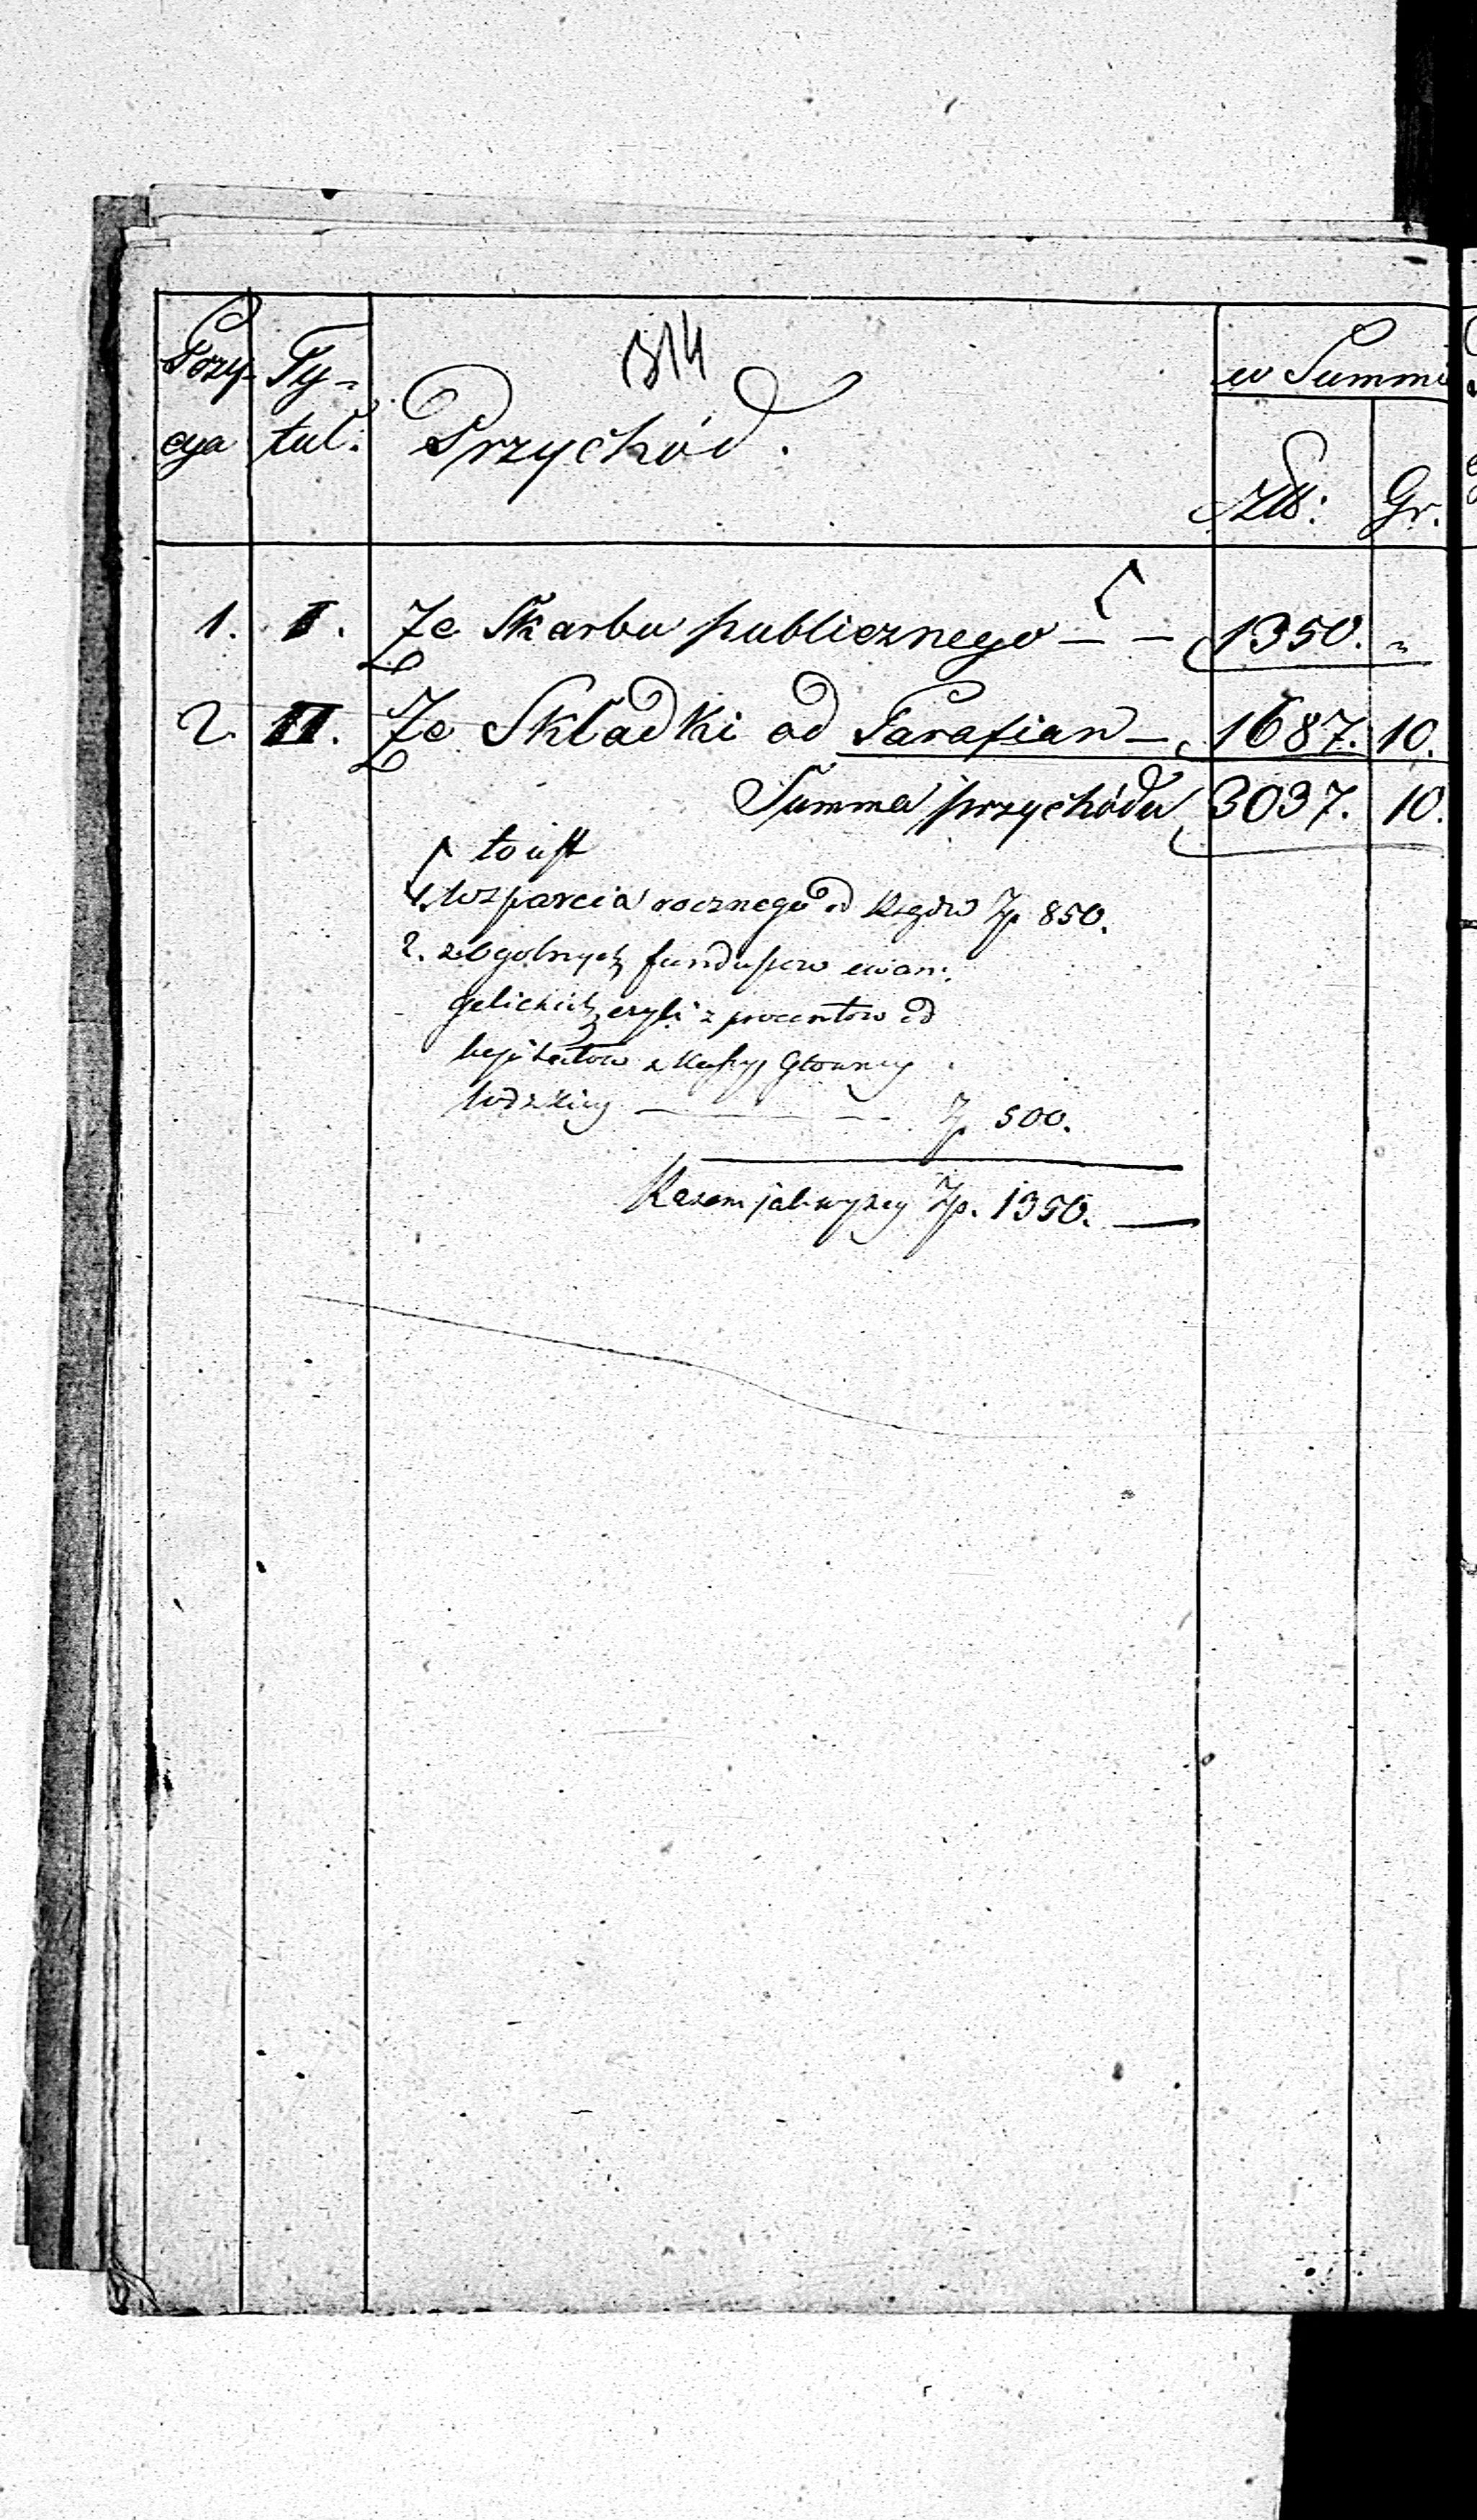 314
Pozy- Ty- Przychód. w Summie
cya tuł: Złt: Gr.
1. I. Ze Skarbu publicznego — — 1350. „
2. II. Ze Składki od Parafian — 1687. 10.
Summa przychódu 3037. 10.
to jest
1. Wsparcia rocznego od Rządu Zp 850.
2. z Ogolnych funduszow ewan:
gelickich czyli z procentow od
kapitałow z Kassy Głowney
łodzkiey — — — Zp 500.
Razem jak wyzey Zp. 1350. —